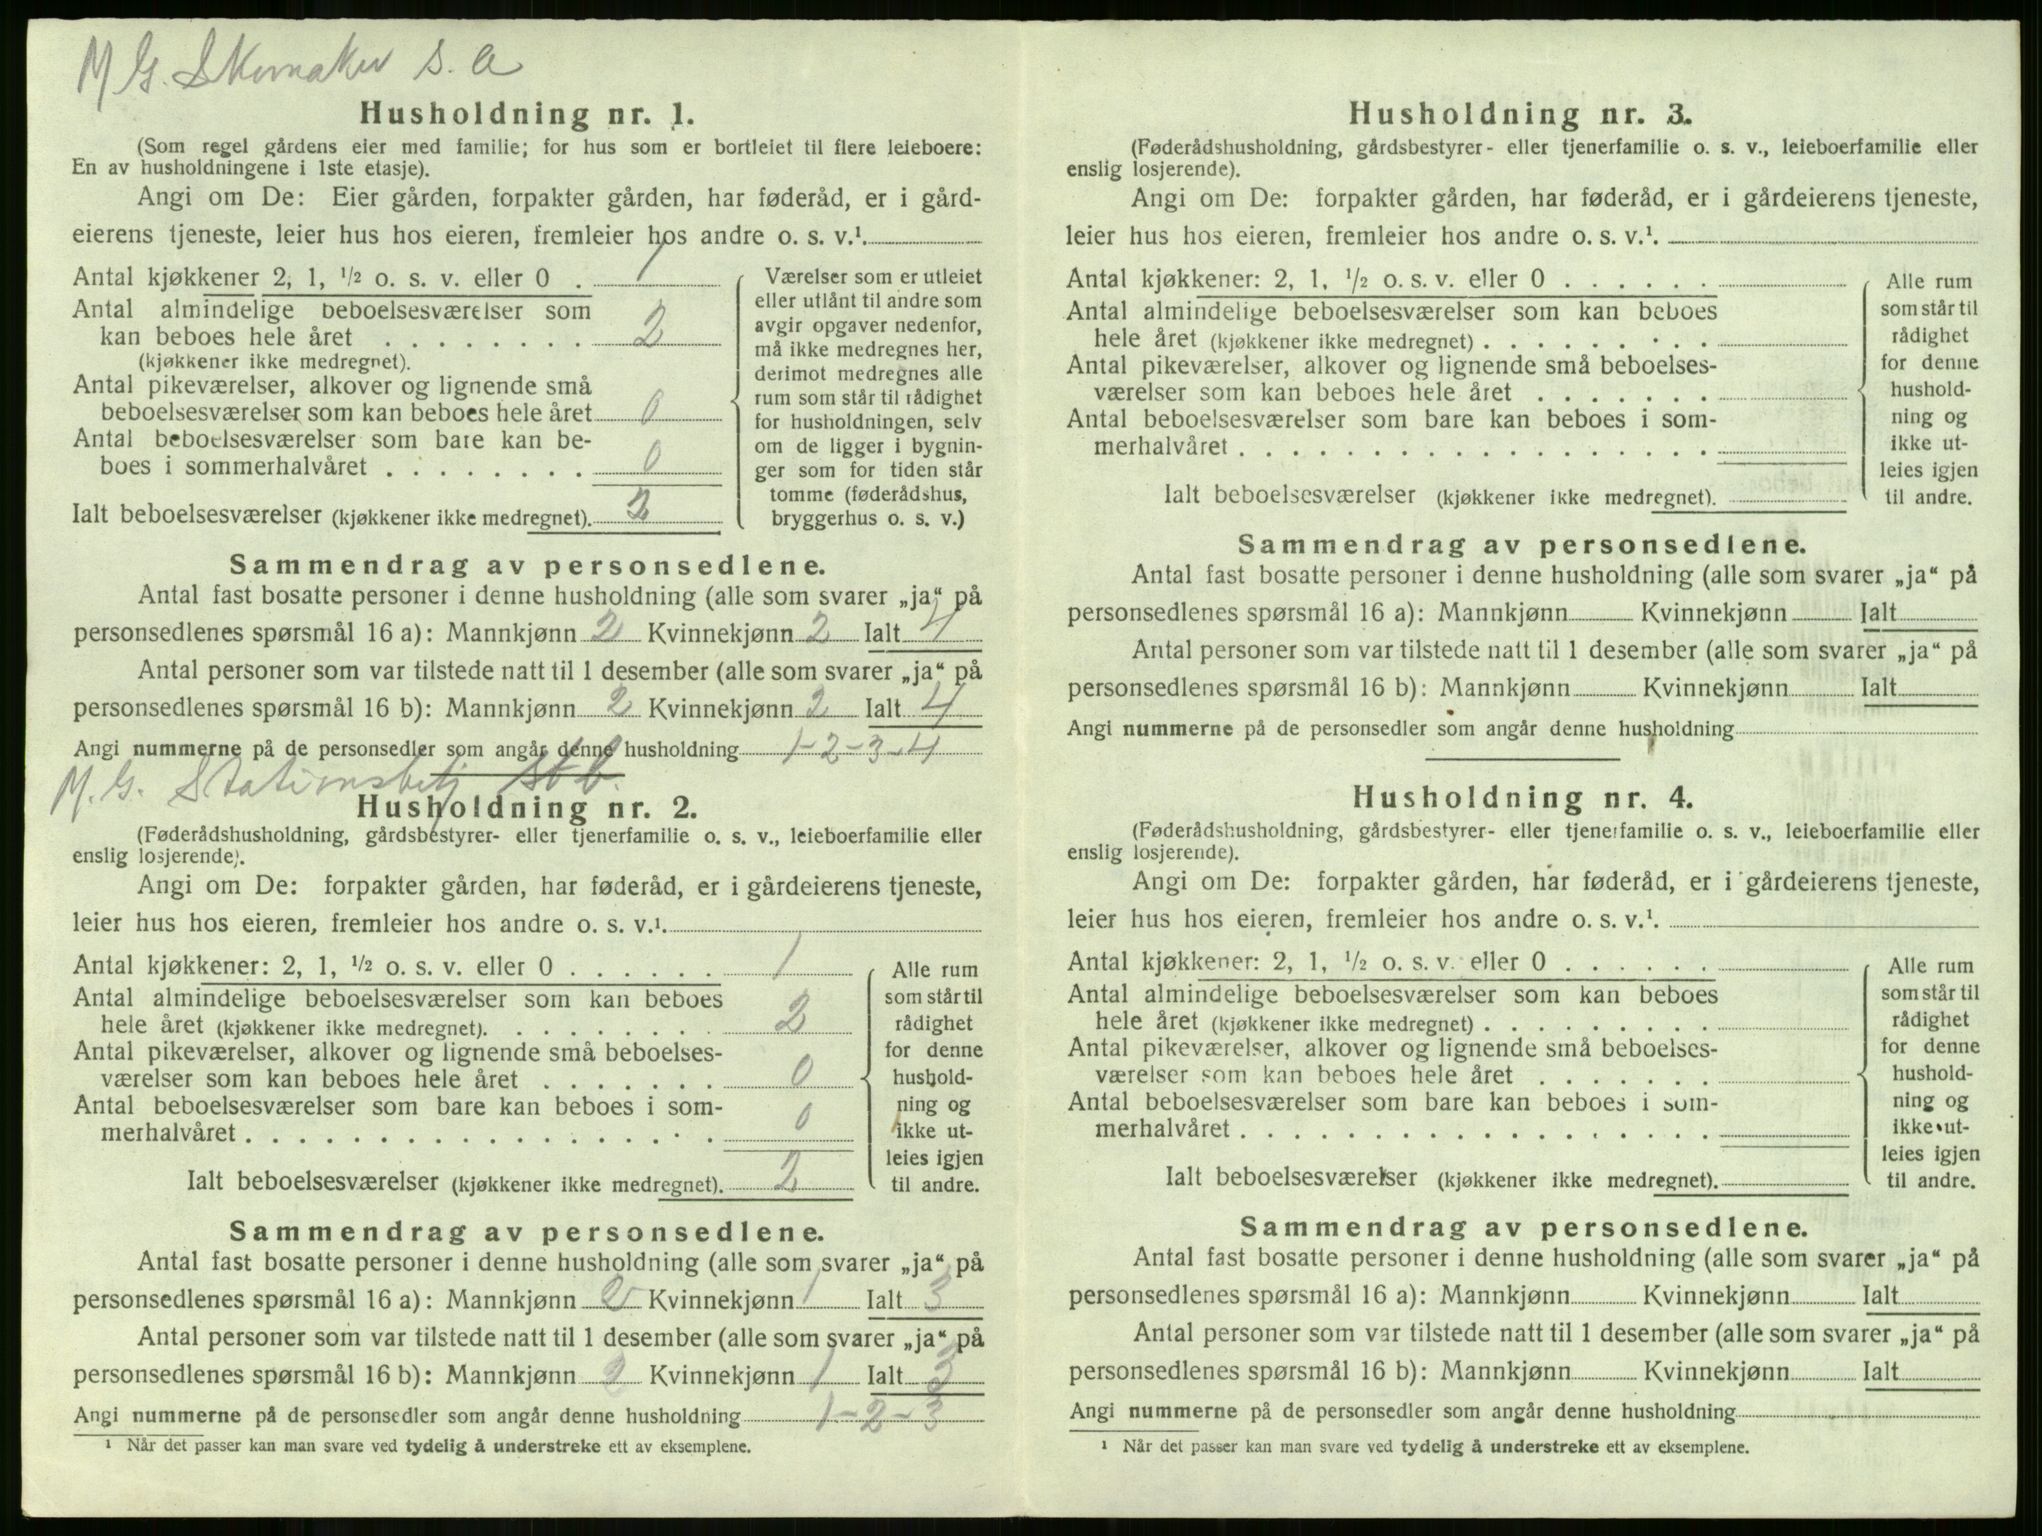 M G. Skomaker s. a
Husholdning nr. 1.
(Som regel gårdens eier med familie; for hus som er bortleiet til flere leieboere:
En av husholdningene i 1ste etasje).
Angi om De: Eier gården, forpakter gården, har føderåd, er i gård-
eierens tjeneste, leier hus hos eieren, fremleier hos andre o. s. v.¹.
Antal kjøkkener 2, 1, ½ o. s. v. eller 0 . 1
Antal almindelige beboelsesværelser som
kan beboes hele året . . . . . . . . 2
(kjøkkener ikke medregnet).
Antal pikeværelser, alkover og lignende små
beboelsesværelser som kan beboes hele året 0
Antal beboelsesværelser som bare kan be-
boes i sommerhalvåret . . . . . . . . 0
Ialt beboelsesværelser (kjøkkener ikke medregnet). 2
Værelser som er utleiet
eller utlånt til andre som
avgir opgaver nedenfor,
må ikke medregnes her,
derimot medregnes alle
rum som står til rådighet
for husholdningen, selv
om de ligger i bygnin-
ger som for tiden står
tomme (føderådshus,
bryggerhus o. s. v.)
Sammendrag av personsedlene.
Antal fast bosatte personer i denne husholdning (alle som svarer „ja“ på
personsedlenes spørsmål 16 a): Mannkjønn 2 Kvinnekjønn 2 Ialt 4
Antal personer som var tilstede natt til 1 desember (alle som svarer „ja“ på
personsedlenes spørsmål 16 b): Mannkjønn 2 Kvinnekjønn 2 Ialt 4
Angi nummerne på de personsedler som angår denne husholdning 1-2-3-4
M. G. Stationsbetj
Husholdning nr. 2.
(Føderådshusholdning, gårdsbestyrer- eller tjenerfamilie o. s. v., leieboerfamilie eller
enslig losjerende).
Angi om De: forpakter gården, har føderåd, er i gårdeierens tjeneste,
leier hus hos eieren, fremleier hos andre o. s. v.¹.
Antal kjøkkener: 2, 1, ½ o. s. v. eller 0 . . . . . . 1
Antal almindelige beboelsesværelser som kan beboes
hele året (kjøkkener ikke medregnet). . . . . . . . . 2
Antal pikeværelser, alkover og lignende små beboelses-
værelser som kan beboes hele året . . . . . . . 0
Antal beboelsesværelser som bare kan beboes i som-
merhalvåret . . . . . . . . . . . . . . . . . . 0
Ialt beboelsesværelser (kjøkkener ikke medregnet). 2
Alle rum
som står til
rådighet
for denne
hushold-
ning og
ikke ut-
leies igjen
til andre.
Sammendrag av personsedlene.
Antal fast bosatte personer i denne husholdning (alle som svarer „ja“ på
personsedlenes spørsmål 16 a): Mannkjønn 2 Kvinnekjønn 1 Ialt 3
Antal personer som var tilstede natt til 1 desember (alle som svarer „ja“ på
personsedlenes spørsmål 16 b): Mannkjønn 2 Kvinnekjønn 1 Ialt 3
Angi nummerne på de personsedler som angår denne husholdning 1-2-3
¹ Når det passer kan man svare ved tydelig å understreke ett av eksemplene.
Husholdning nr. 3.
(Føderådshusholdning, gårdsbestyrer- eller tjenerfamilie o. s. v., leieboerfamilie eller
enslig losjerende).
Angi om De: forpakter gården, har føderåd, er i gårdeierens tjeneste,
leier hus hos eieren, fremleier hos andre o. s. v.¹.
Antal kjøkkener: 2, 1, ½ o. s. v. eller 0 . . . . . .
Antal almindelige beboelsesværelser som kan beboes
hele året (kjøkkener ikke medregnet) . . . . . . . . .
Antal pikeværelser, alkover og lignende små beboelses-
værelser som kan beboes hele året . . . . . . .
Antal beboelsesværelser som bare kan beboes i som-
merhalvåret . . . . . . . . . . . . . . . . . .
Ialt beboelsesværelser (kjøkkener ikke medregnet).
Alle rum
som står til
rådighet
for denne
hushold-
ning og
ikke ut-
leies igjen
til andre.
Sammendrag av personsedlene.
Antal fast bosatte personer i denne husholdning (alle som svarer „ja“ på
personsedlenes spørsmål 16 a): Mannkjønn Kvinnekjønn Ialt
Antal personer som var tilstede natt til 1 desember (alle som svarer „ja“ på
personsedlenes spørsmål 16 b): Mannkjønn Kvinnekjønn Ialt
Angi nummerne på de personsedler som angår denne husholdning
Husholdning nr. 4.
(Føderådshusholdning, gårdsbestyrer- eller tjenerfamilie o. s. v., leieboerfamilie eller
enslig losjerende).
Angi om De: forpakter gården, har føderåd, er i gårdeierens tjeneste,
leier hus hos eieren, fremleier hos andre o. s. v.¹.
Antal kjøkkener: 2, 1, ½ o. s. v. eller 0 . . . . . .
Antal almindelige beboelsesværelser som kan beboes
hele året (kjøkkener ikke medregnet) . . . . . . . . .
Antal pikeværelser, alkover og lignende små beboelses-
værelser som kan beboes hele året . . . . . . .
Antal beboelsesværelser som bare kan beboes i som-
merhalvåret . . . . . . . . . . . . . . . . . .
Ialt beboelsesværelser (kjøkkener ikke medregnet).
Alle rum
som står til
rådighet
for denne
hushold-
ning og
ikke ut-
leies igjen
til andre.
Sammendrag av personsedlene.
Antal fast bosatte personer i denne husholdning (alle som svarer „ja“ på
personsedlenes spørsmål 16 a): Mannkjønn Kvinnekjønn Ialt
Antal personer som var tilstede natt til 1 desember (alle som svarer „ja“ på
personsedlenes spørsmål 16 b): Mannkjønn Kvinnekjønn Ialt
Angi nummerne på de personsedler som angår denne husholdning
¹ Når det passer kan man svare ved tydelig å understreke ett av eksemplene.